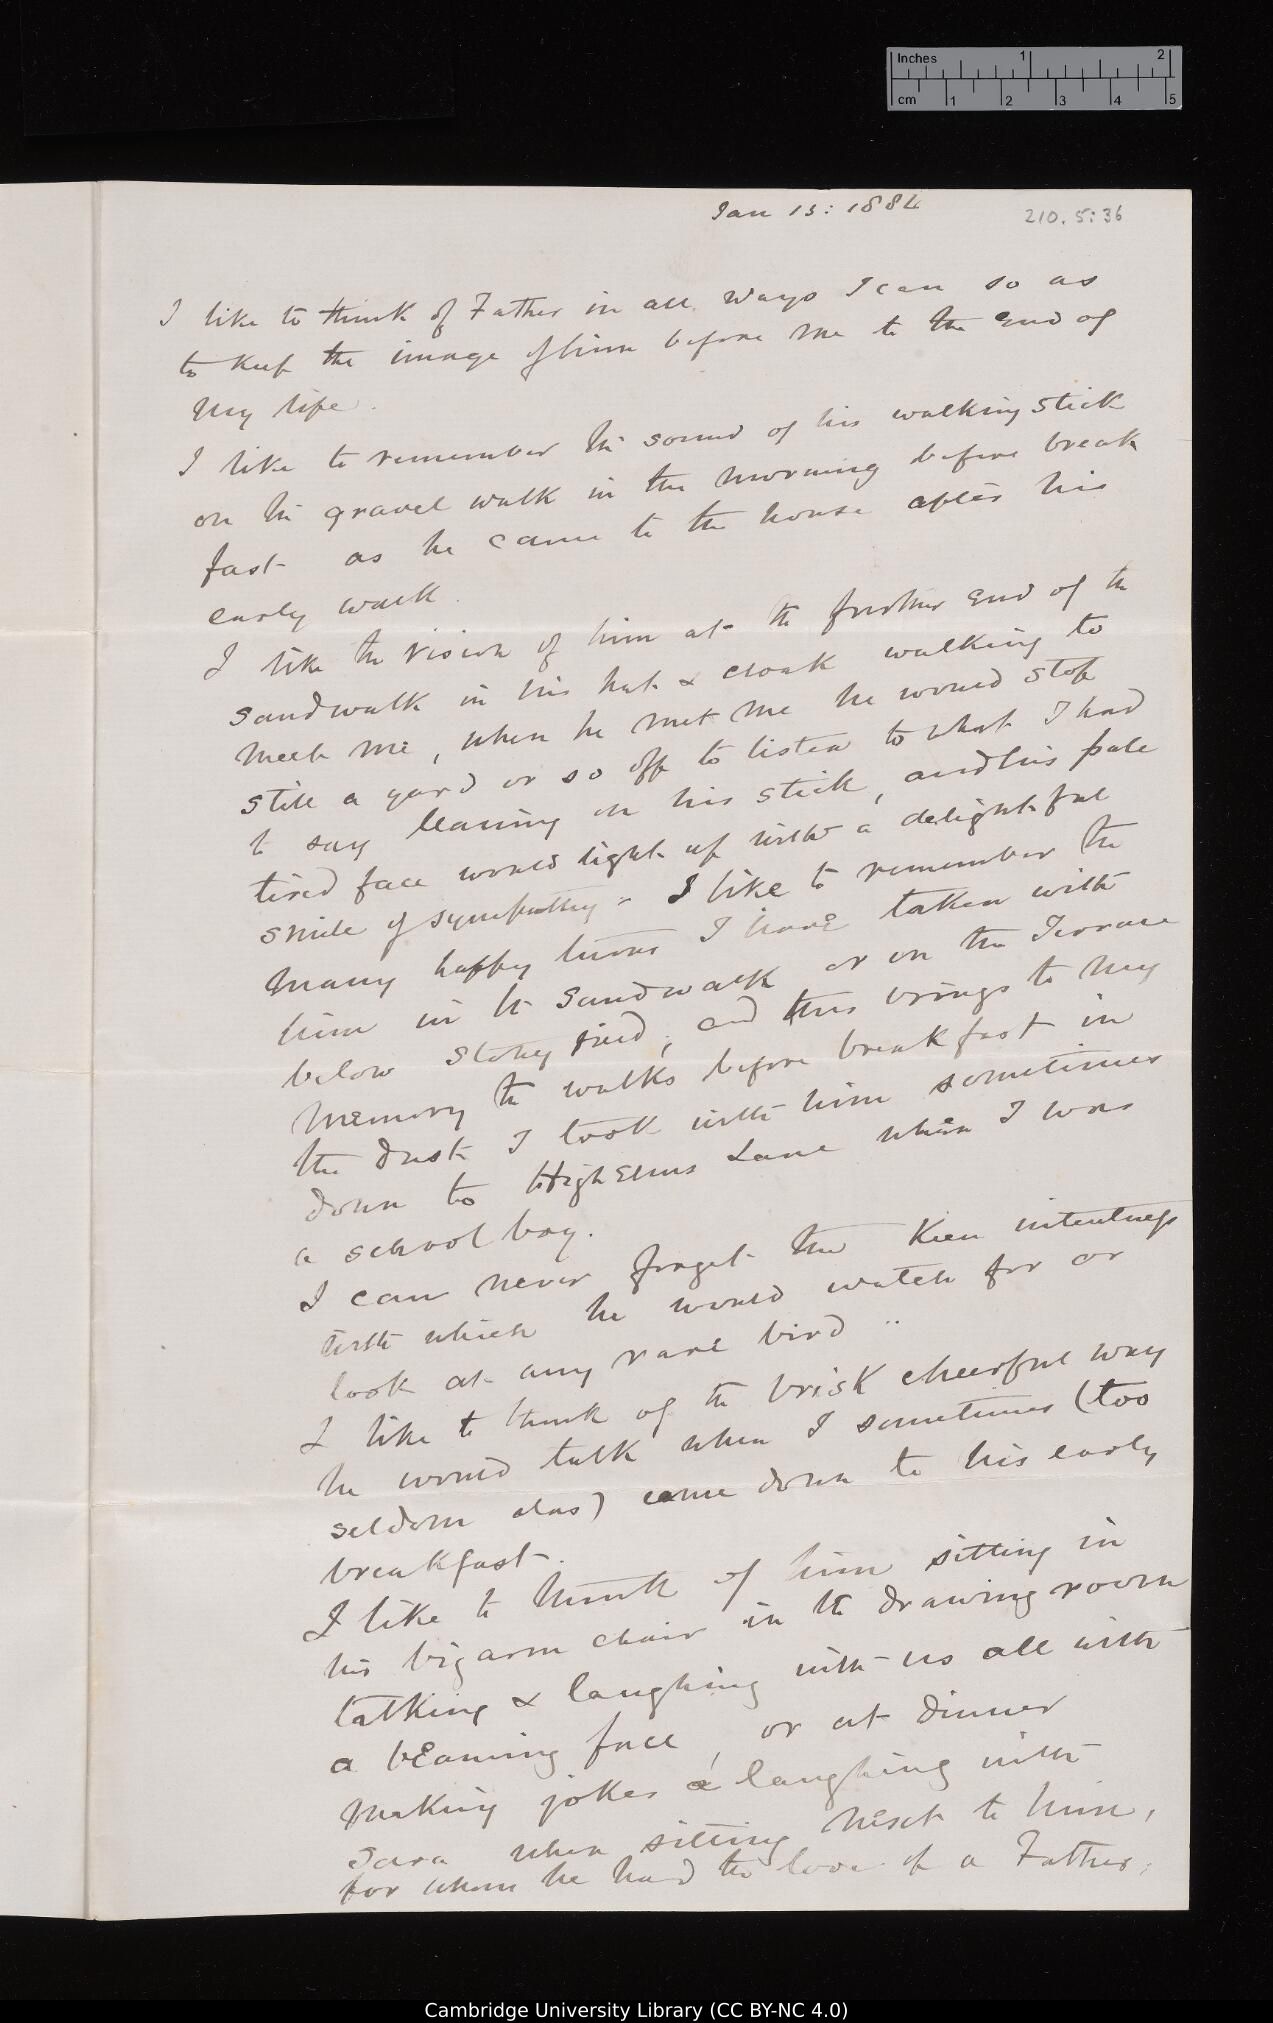 Inches 1 2
cm 1 2 3 4 5
Jan 13: 1884
210.5:36
I like to think of Father in all ways I can so as
to keep the image of him before me to the end of
my life.
I like to remember the sound of his walking stick
on the gravel walk in the morning before break
fast as he came to the house after his
early walk.
I like the vision of him at the further end of the
sandwalk in his hat & cloak walking to
meet me, when he met me he would stop
still a yard or so off to listen to what I had
to say leaning on his stick, and his pale
tired face would light up with a delightful
smile of sympathy. I like to remember the
many happy turns I have taken with
him in the sandwalk or on the Terrace
below Stony field, and this brings to my
memory the walks before breakfast in
the dusk I took with him sometimes
down to High Elms Lane when I was
a school boy.
I can never forget the keen intentness
with which he would watch for or
look at any rare bird
I like to think of the brisk cheerful way
he would talk when I sometimes (too
seldom alas) came down to his early
breakfast.
I like to think of him sitting in
his big arm chair in the drawing room
talking & laughing with us all with
a beaming face, or at dinner
making jokes & laughing with
Sara when sitting next to him,
for whom he had the love of a Father,
Cambridge University Library (CC BY-NC 4.0)